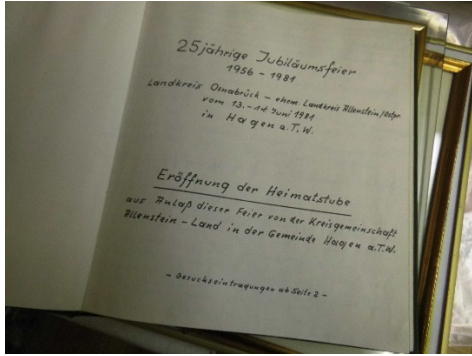 25jährige Jubiläumsfeier
1956 - 1981
Landkreis Osnabrück - ehem. Landkreis Allenstein/Ostpr.
vom 13.-14. Juni 1981
in Hagen a.T.W.
Eröffnung der Heimatstube
aus Anlaß dieser Feier von der Kreisgemeinschaft
Allenstein-Land in der Gemeinde Hagen a.T.W.
- Besuchseintragungen ab Seite 2 -